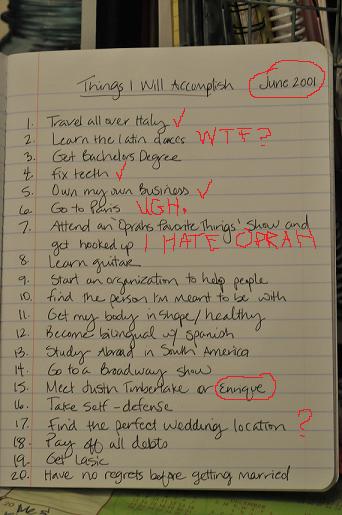 Things I Will Accomplish June 2001
1. Travel all over Italy ✓
2. Learn the latin dances WTF?
3. Get Bachelors Degree
4. fix teeth ✓
5. Own my own Business ✓
6. Go to Paris UGH.
7. Attend an "Oprahs Favorite Things" show and
get hooked up I HATE OPRAH
8. Learn guitar
9. Start an organization to help people
10. find the person I'm meant to be with
11. Get my body in shape/healthy
12. Become bilingual w/ Spanish
13. Study Abroad in South America
14. Go to a Broadway show
15. Meet Justin Timberlake or Enrique
16. Take self-defense
17. Find the perfect wedding location ?
18. Pay off all debts
19. Get lasic
20. Have no regrets before getting married